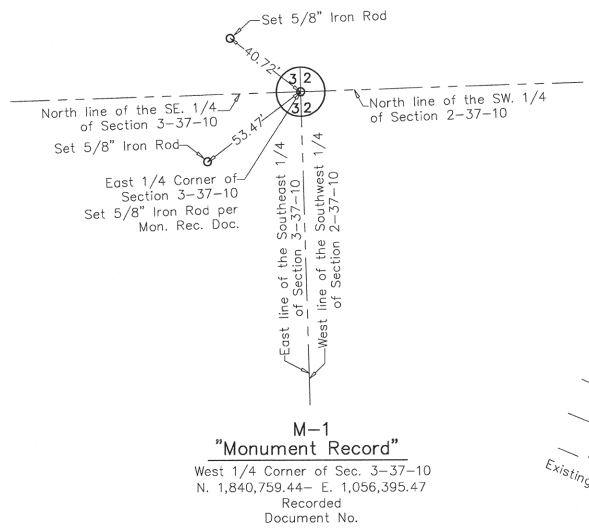 Set 5/8" Iron Rod
40.72'
3 2
3 2
North line of the SE. 1/4
of Section 3-37-10
North line of the SW. 1/4
of Section 2-37-10
Set 5/8" Iron Rod
53.47'
East 1/4 Corner of
Section 3-37-10
Set 5/8" Iron Rod per
Mon. Rec. Doc.
East line of the Southeast 1/4
of Section 3-37-10
West line of the Southwest 1/4
of Section 2-37-10
M-1
"Monument Record"
West 1/4 Corner of Sec. 3-37-10
N. 1,840,759.44- E. 1,056,395.47
Recorded
Document No.
Existing